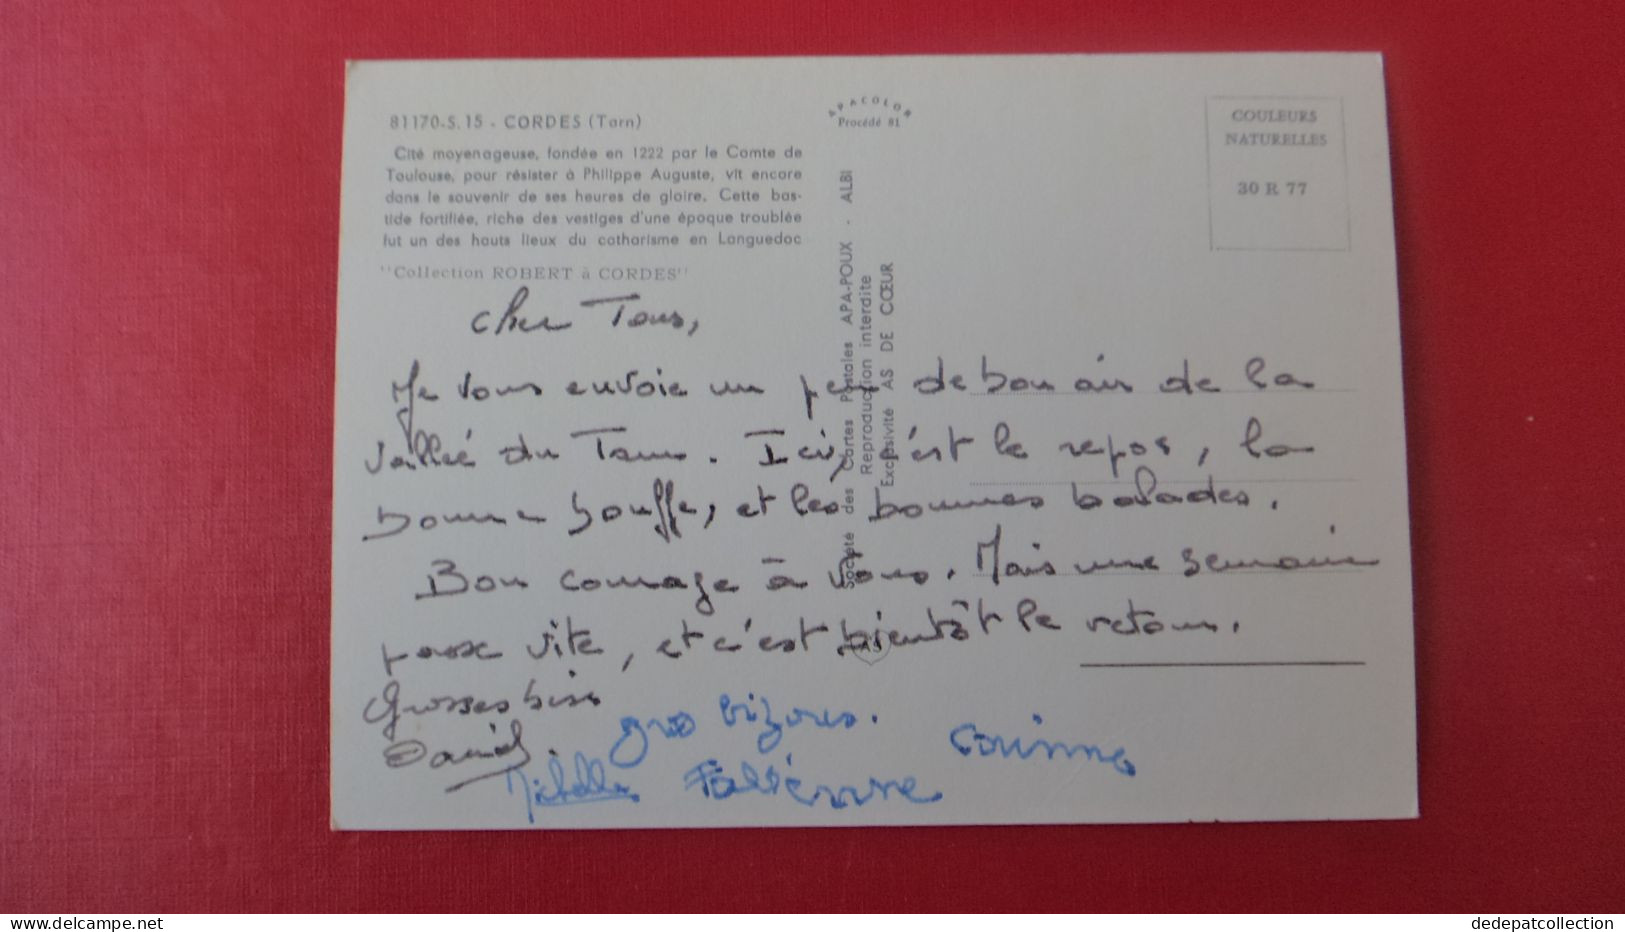 81170-S.15 - CORDES (Tarn)
Cité moyenageuse, fondée en 1222 par le Comte de
Toulouse, pour résister à Philippe Auguste, vit encore
dans le souvenir de ses heures de gloire. Cette bas-
tide fortifiée, riche des vestiges d'une époque troublée
fut un des hauts lieux du catharisme en Languedoc
"Collection ROBERT à CORDES"
APACOLOR
Procédé 81
COULEURS
NATURELLES
30 R 77
Société des Cartes Postales APA-POUX - ALBI
Reproduction interdite
Exclusivité AS DE CŒUR
Cher Tous,
Je vous envoie un peu de bon air de la
vallée du Tarn. Ici, c'est le repos, la
bonne bouffe, et les bonnes balades.
Bon courage à vous. Mais une semaine
passe vite, et c'est bientôt le retour.
Grosses bises
Daniel
gros bizoux.
Corinne
Michelle Fabienne
dedepatcollection